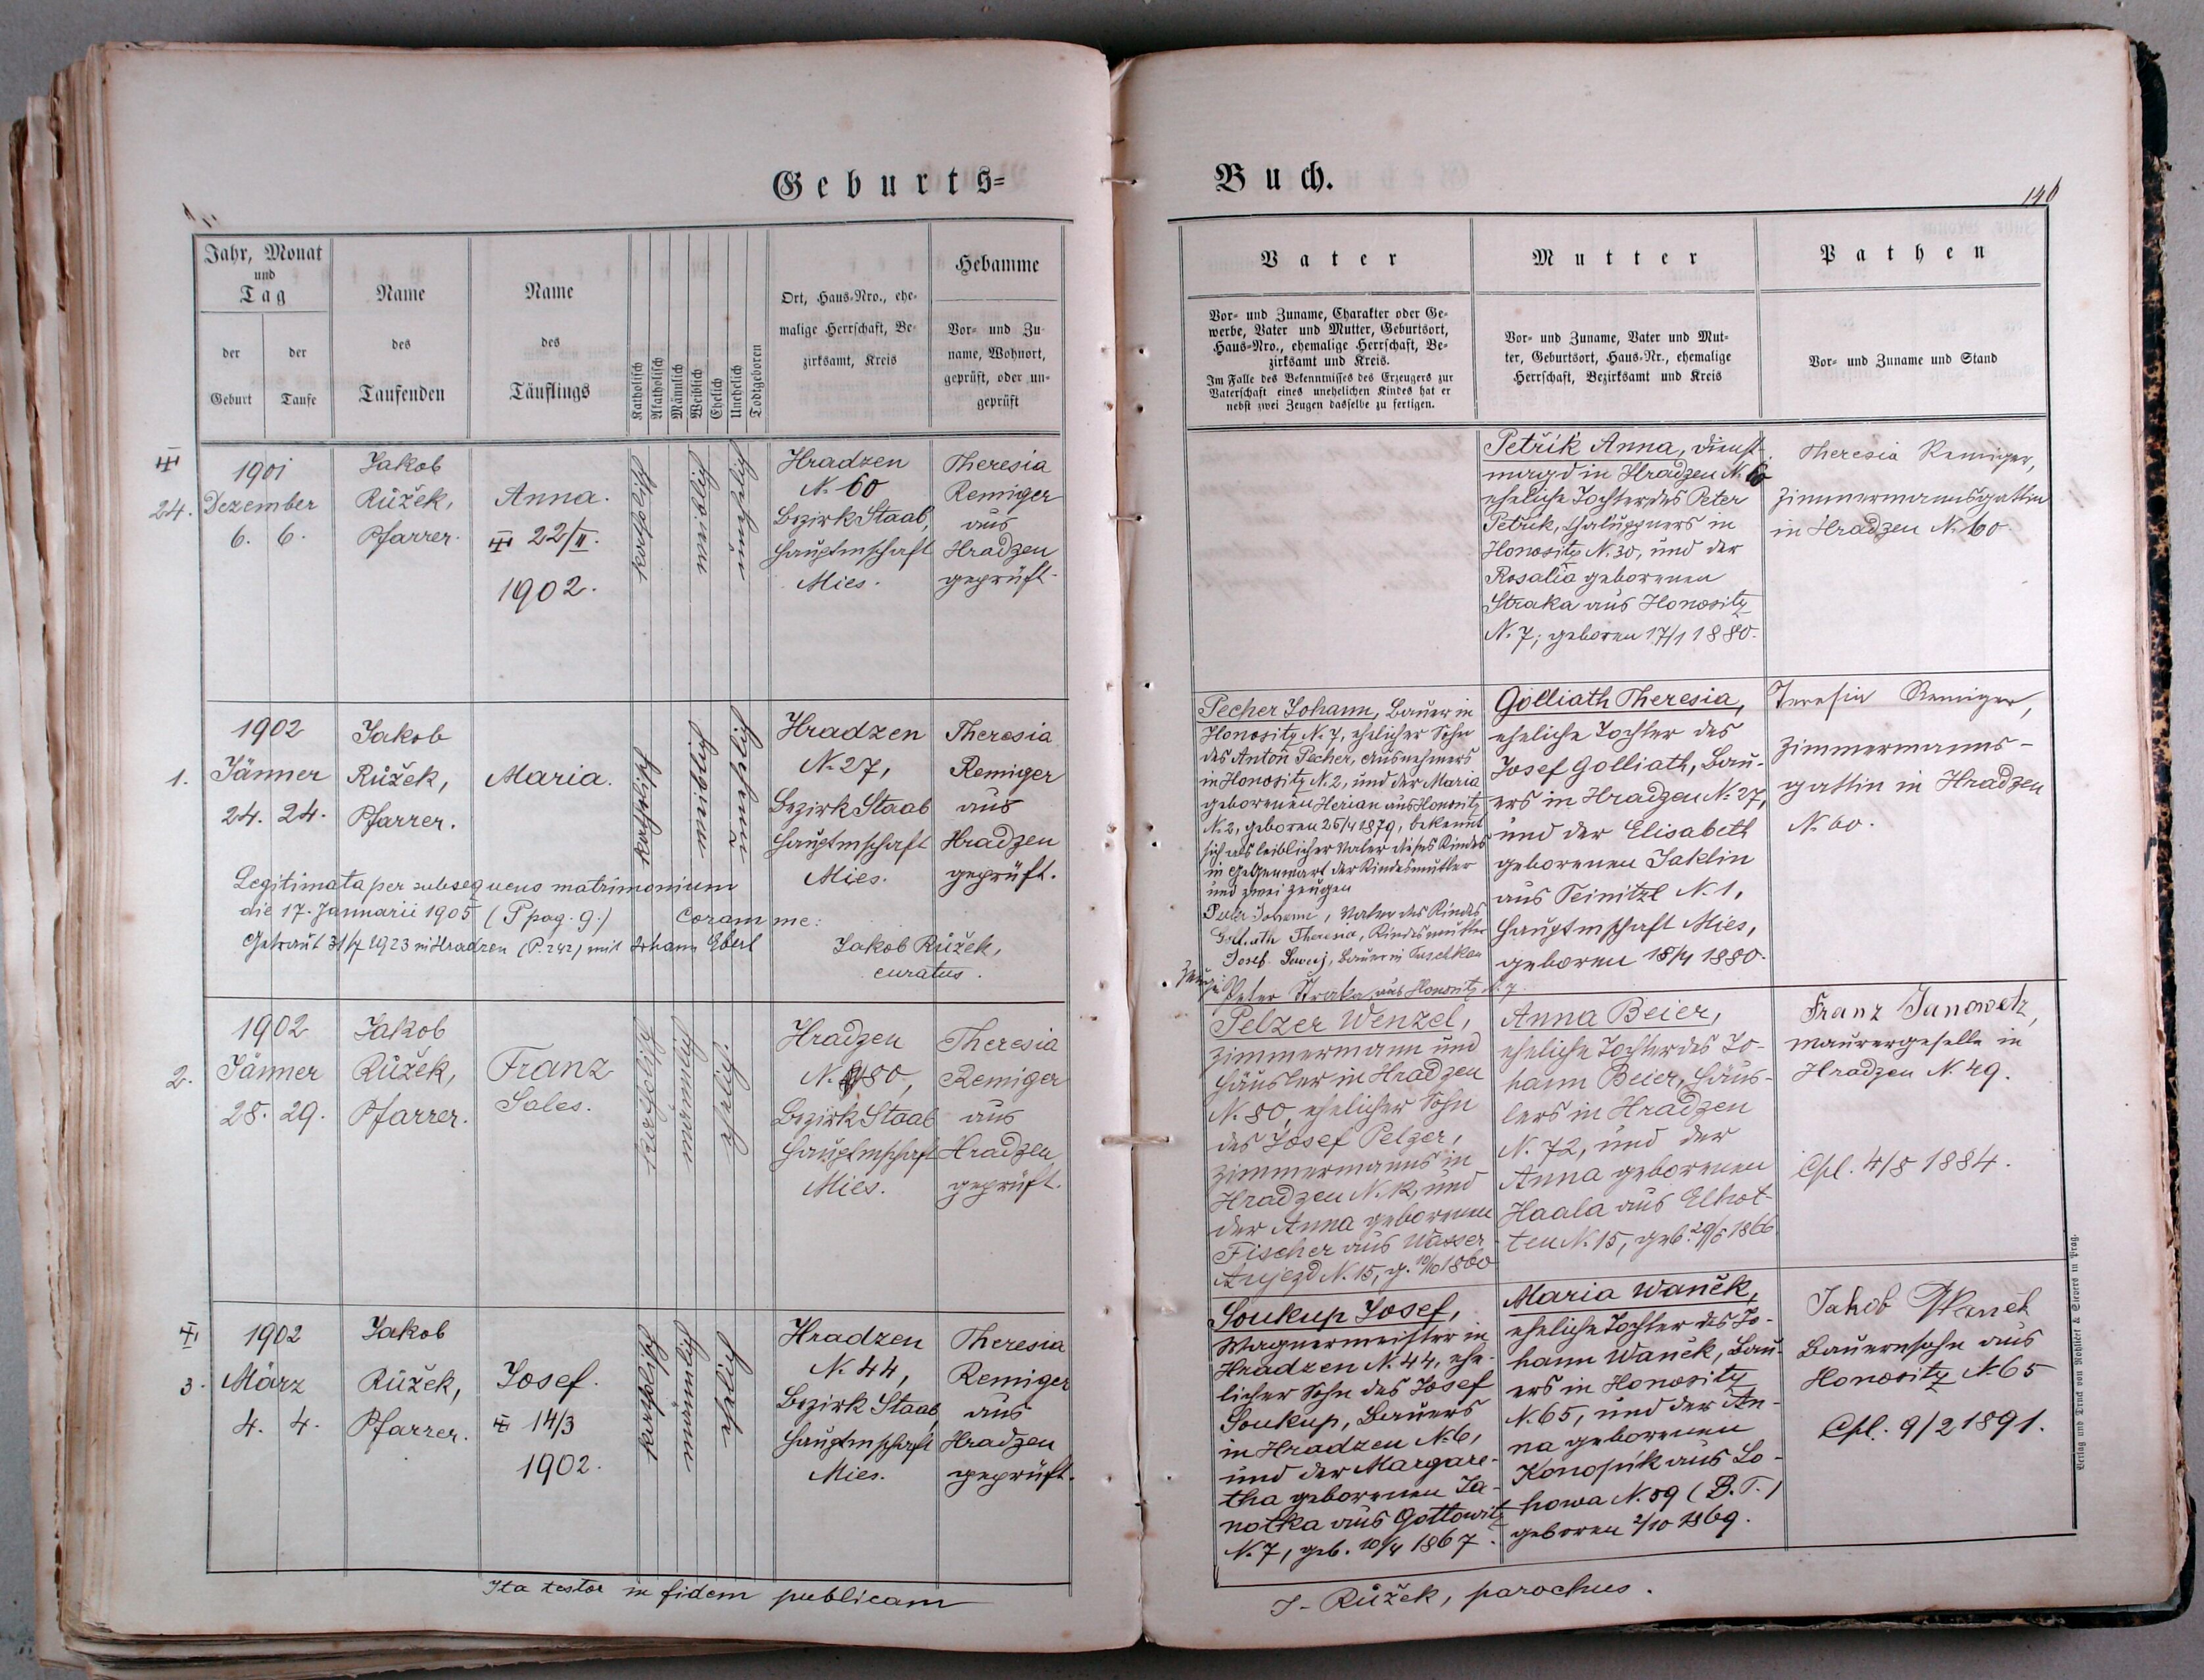 Geburts=
Buch.
146
Jahr, Monat
und
Tag
der
Geburt
der
Taufe
Name
des
Taufenden
Name
des
Täuflings
Katholisch
Akatholisch
Männlich
Weiblich
Ehelich
Unehelich
Todtgeboren
Ort, Haus-Nro., ehe-
malige Herrschaft, Be-
zirksamt, Kreis
Hebamme
Vor- und Zu-
name, Wohnort,
geprüft, oder un-
geprüft
Vater
Vor- und Zuname, Charakter oder Ge-
werbe, Vater und Mutter, Geburtsort,
Haus-Nro., ehemalige Herrschaft, Be-
zirksamt und Kreis.
Im Falle des Bekenntnisses des Erzeugers zur
Vaterschaft eines unehelichen Kindes hat er
nebst zwei Zeugen dasselbe zu fertigen.
Mutter
Vor- und Zuname, Vater und Mut-
ter, Geburtsort, Haus-Nr., ehemalige
Herrschaft, Bezirksamt und Kreis
Pathen
Vor- und Zuname und Stand
24.
1901
Dezember
6. 6.
Jakob
Růžek,
Pfarrer.
Anna.
22/II.
1902.
katholisch
weiblich
unehelich
Hradzen
N. 60
Bezirk Staab,
Hauptmschaft
Mies.
Theresia
Remiger
aus
Hradzen
geprüft.
Petřík Anna, Dienst-
magd in Hradzen N. 60
eheliche Tochter des Peter
Petřík, Chaluppners in
Honositz N. 30, und der
Rosalia geborenen
Straka aus Honositz
N. 7; geboren 17/1 1880.
Theresia Remiger,
Zimmermannsgattin
in Hradzen N. 60
1.
1902
Jänner
24. 24.
Jakob
Růžek,
Pfarrer.
Maria.
katholisch
weiblich
unehelich
Hradzen
N. 27,
Bezirk Staab
Hauptmschaft
Mies.
Theresia
Remiger
aus
Hradzen
geprüft.
Legitimata per subsequens matrimonium
die 17. Januarii 1905 (P pag. 9.) coram me:
Getraut 31/7 1923 in Hradzen (P. 242) mit Johann Eberl
Jakob Růžek,
curatus.
Pecher Johann, Bauer in
Honositz N. 7, ehelicher Sohn
des Anton Pecher, Ausnehmers
in Honositz N. 2, und der Maria
geborenen Herian aus Honositz
N. 2, geboren 25/4 1879, bekennt
sich als leiblicher Vater dieses Kindes
in Gegenwart der Kindesmutter
und zwei Zeugen
Johann, Vater des Kindes
Golliath Theresia, Kindesmutter
Josef Bauer in Tuschkau
Peter Straka aus Honositz N. 7
Golliath Theresia,
eheliche Tochter des
Josef Golliath, Bau-
ers in Hradzen N. 27,
und der Elisabeth
geborenen Jaklin
aus Teinitzl N. 1,
Hauptmschaft Mies,
geboren 15/4 1880.
Teresia Remiger,
Zimmermanns-
gattin in Hradzen
N. 60.
2.
1902
Jänner
28. 29.
Jakob
Růžek,
Pfarrer.
Franz
Sales.
katholisch
männlich
ehelich.
Hradzen
N. 80,
Bezirk Staab
Hauptmschaft
Mies.
Theresia
Remiger
aus
Hradzen
geprüft.
Pelzer Wenzel,
Zimmermann und
Häusler in Hradzen
N. 80, ehelicher Sohn
des Josef Pelzer,
Zimmermanns in
Hradzen N. 12, und
der Anna geborenen
Fischer aus Wasser
Aujezd N. 15, g. 10/10 1860
Anna Beier,
eheliche Tochter des Jo-
hann Beier, Häus-
lers in Hradzen
N. 72, und der
Anna geborenen
Haala aus Elhot-
ten N. 15, geb. 29/6 1866
Franz Janowetz,
Maurergeselle in
Hradzen N. 49.
Cpl. 4/8 1884.
3.
1902
März
4. 4.
Jakob
Růžek,
Pfarrer.
Josef.
14/3
1902.
katholisch
männlich
ehelich
Hradzen
N. 44,
Bezirk Staab,
Hauptmschaft
Mies.
Theresia
Remiger
aus
Hradzen
geprüft.
Soukup Josef,
Wagnermeister in
Hradzen N. 44, ehe-
licher Sohn des Josef
Soukup, Bauers
in Hradzen N. 6,
und der Margare-
tha geborenen Ja-
notka aus Gottowitz
N. 7, geb. 10/4 1867.
Maria Waněk,
eheliche Tochter des Jo-
hann Waněk, Bau-
ers in Honositz
N. 65, und der An-
na geborenen
Konopík aus Lo-
howa N. 59 (B. T.)
geboren 2/10 1869.
Jakob Waněk
Bauernsohn aus
Honositz N. 65
Cpl. 9/2 1891.
Ita testor in fidem publicam
J. Růžek, parochus.
Verlag und Druck von Rohliček & Sievers in Prag.